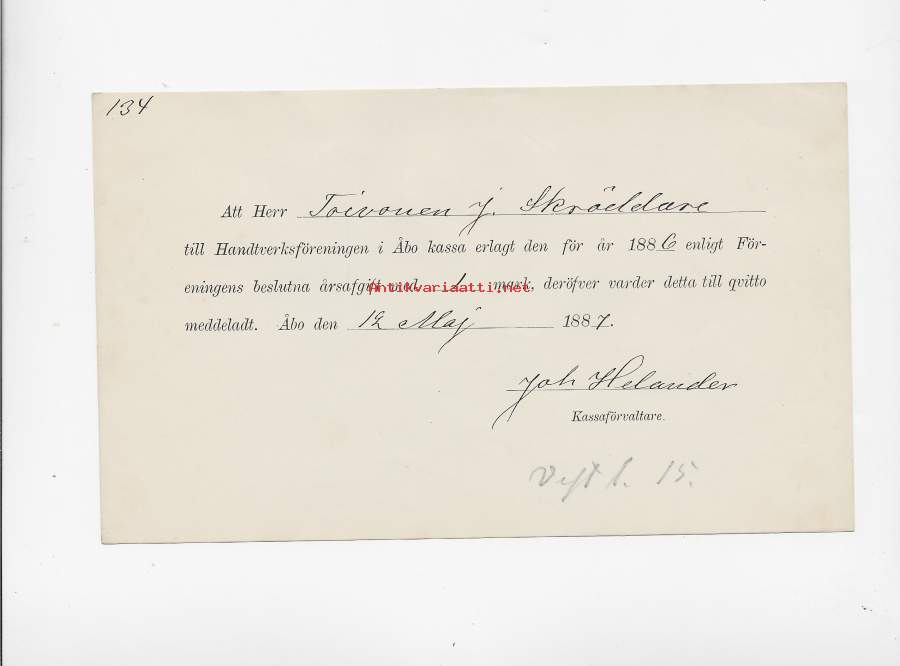 134
Att Herr Toivonen J. Skräddare
till Handtverksföreningen i Åbo kassa erlagt den för år 1886 enligt För-
eningens beslutna årsafgift med 1 mark, deröfver varder detta till qvitto
Antikvariaatti.net
meddeladt. Åbo den 12 Maj 1887.
Joh Helander
Kassaförvaltare.
15.